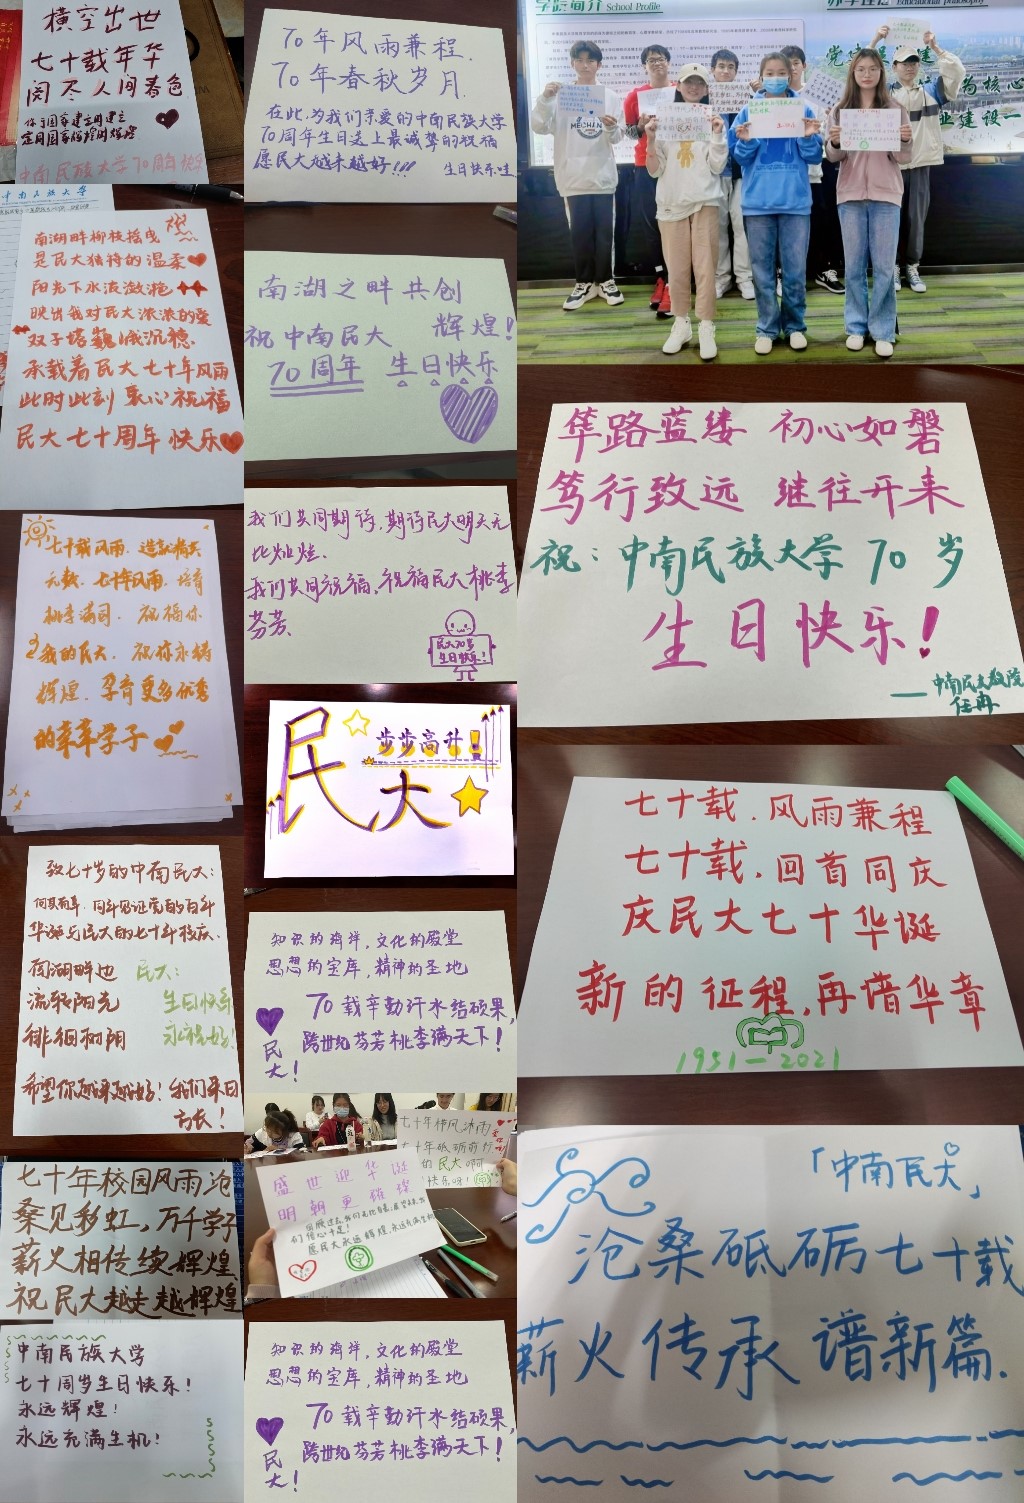 横空出世
七十载年华
阅尽人间春色
中南民族大学70周年快乐
中南民族大学
南湖畔柳枝摇曳
是民大独特的温柔
阳光下水波潋滟
映出我对民大浓浓的爱
双子塔巍峨沉稳
承载着民大七十年风雨
此时此刻 衷心祝福
民大七十周年快乐
七十载风雨，造就精英
无数，七十年风雨，培育
桃李满园，祝福你
我的民大，祝你永铸
辉煌，孕育更多优秀
的莘莘学子
致七十岁的中南民大：
何其有幸，同年见证党的百年
华诞与民大的七十年校庆
南湖畔边
流转阳光
徘徊树阴
民大：
生日快乐
永祝好！
希望你越来越好！我们来日
方长！
七十年校园风雨沧
桑见彩虹，万千学子
薪火相传续辉煌
祝民大越走越辉煌
中南民族大学
七十周岁生日快乐！
永远辉煌！
永远充满生机！
70年风雨兼程
70年春秋岁月
在此，为我们亲爱的中南民族大学
70周年生日送上最诚挚的祝福
愿民大越来越好!!!
生日快乐哇
南湖之畔共创
辉煌！
祝中南民大
70周年 生日快乐
我们共同期待，期待民大明天无
比灿烂
我们共同祝福，祝福民大桃李
芬芳
民大70岁
生日快乐！
民大
步步高升！
知识的海洋，文化的殿堂
思想的宝库，精神的圣地
70载辛勤汗水结硕果，
跨世纪芬芳桃李满天下！
民大！
七十年栉风沐雨
七十年砥砺前行
的民大啊
快乐呀！
盛世迎华诞
明朝更璀璨
愿民大永远辉煌，永远充满生机
知识的海洋，文化的殿堂
思想的宝库，精神的圣地
70载辛勤汗水结硕果，
跨世纪芬芳桃李满天下！
民大！
学院简介 School Profile
办学理念 Educational philosophy
党建
为核心
业建设一
MECHAN
筚路蓝缕 初心如磐
笃行致远 继往开来
祝：中南民族大学70岁
生日快乐！
七十载，风雨兼程
七十载，回首同庆
庆民大七十华诞
新的征程，再谱华章
1951—2021
「中南民大」
沧桑砥砺七十载
薪火传承谱新篇.